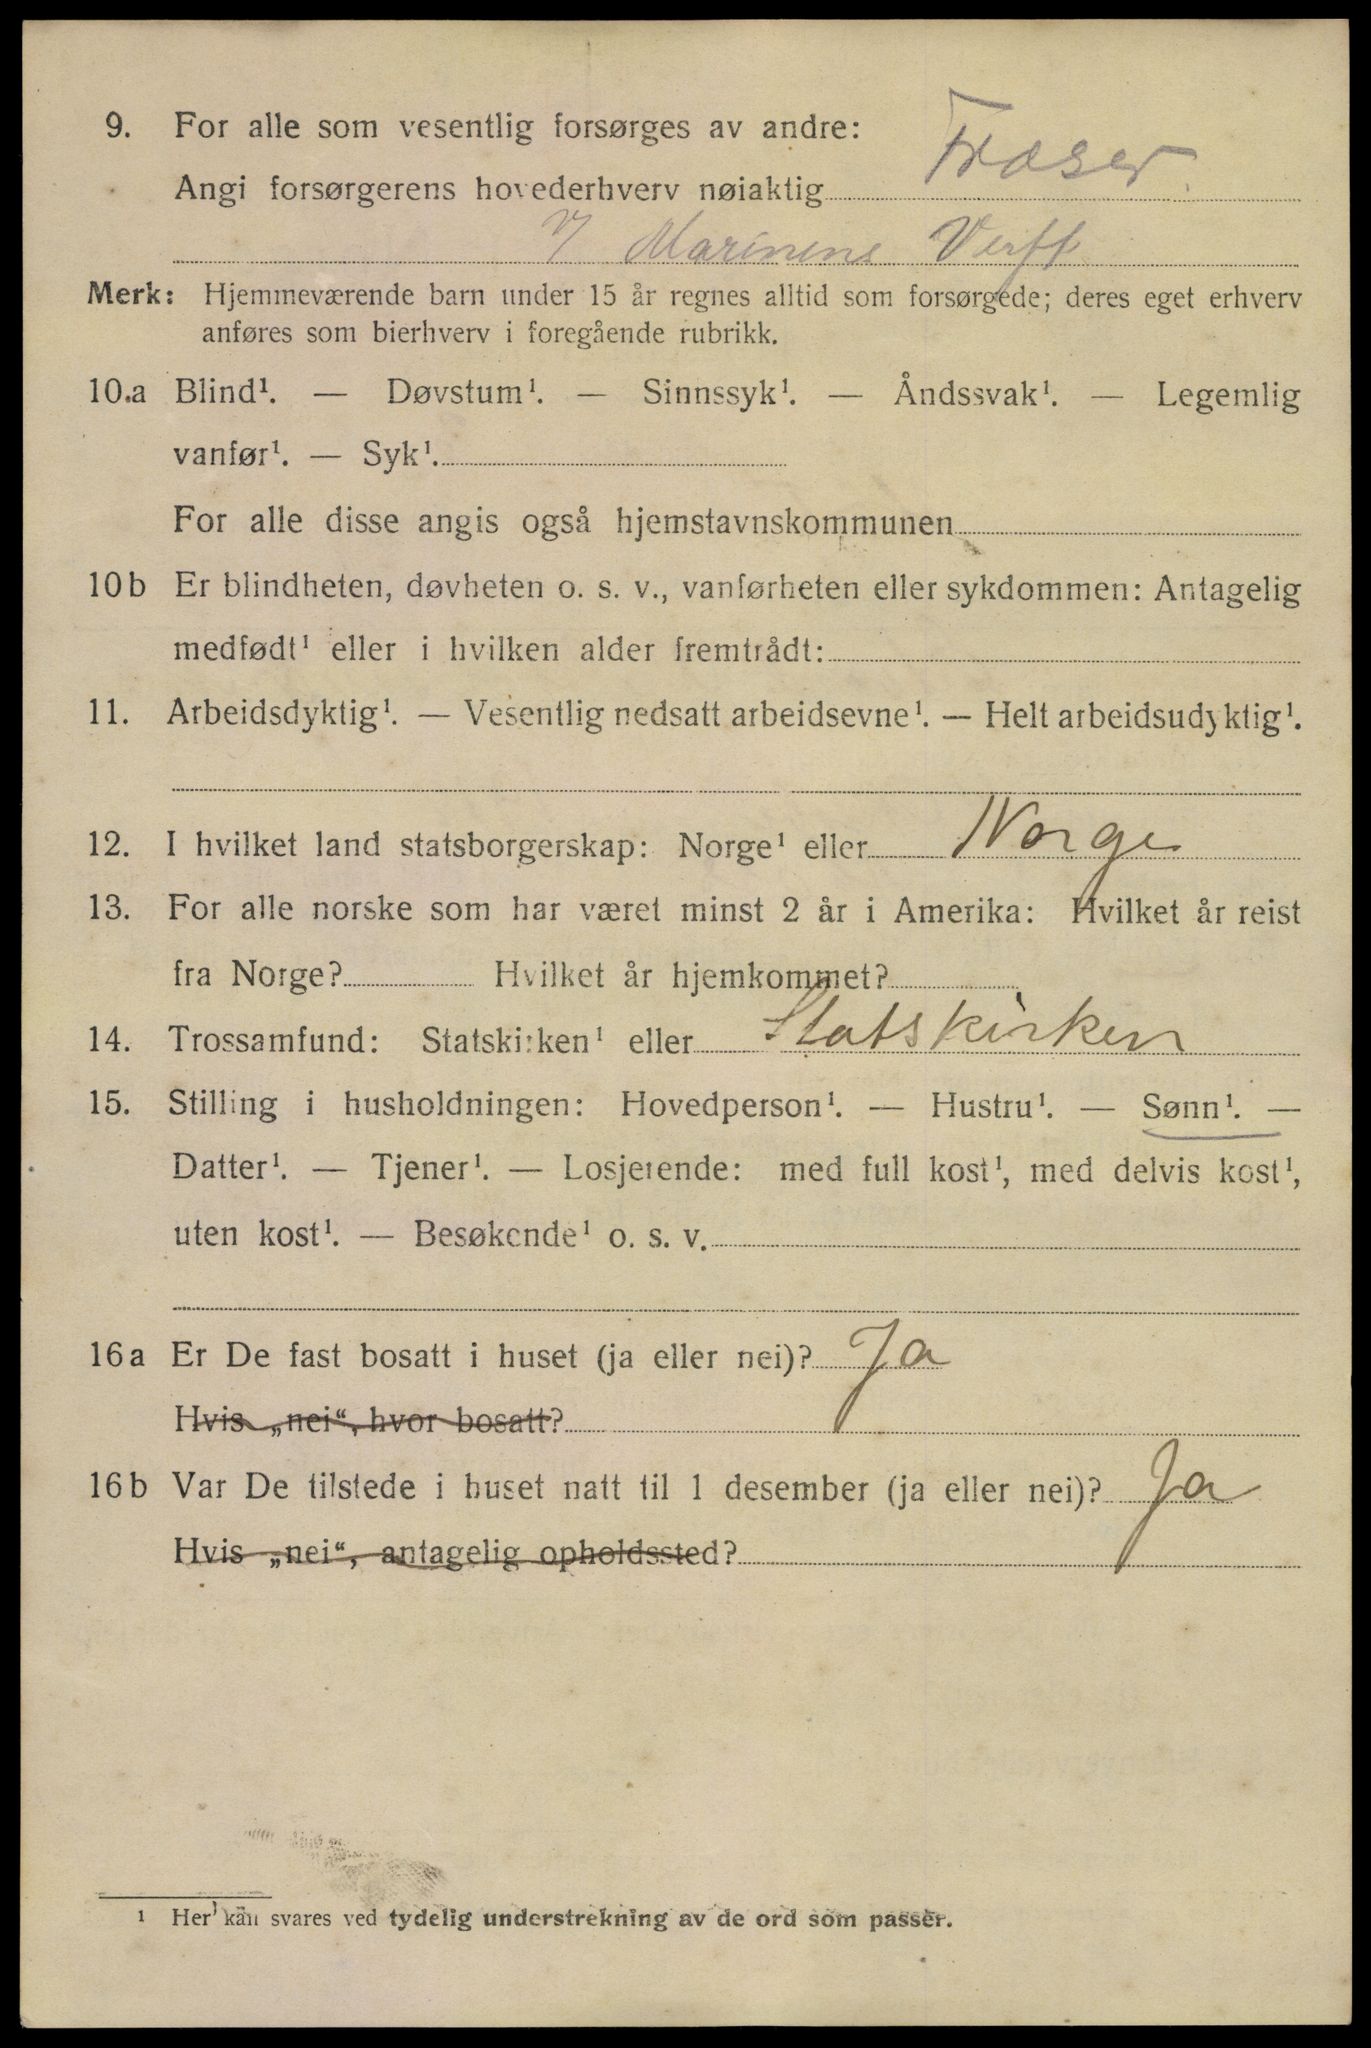 9. For alle som vesentlig forsørges av andre:
Angi forsørgerens hovederhverv nøiaktig Fræser
V/ Marinens Verft
Merk: Hjemmeværende barn under 15 år regnes alltid som forsørgede; deres eget erhverv
anføres som bierhverv i foregående rubrikk.
10.a Blind¹. — Døvstum¹. — Sinnssyk¹. — Åndssvak¹. — Legemlig
vanfør¹. — Syk¹.
For alle disse angis også hjemstavnskommunen
10b Er blindheten, døvheten o. s. v., vanførheten eller sykdommen: Antagelig
medfødt¹ eller i hvilken alder fremtrådt:
11. Arbeidsdyktig¹. — Vesentlig nedsatt arbeidsevne¹. — Helt arbeidsudyktig¹.
12. I hvilket land statsborgerskap: Norge¹ eller Norge
13. For alle norske som har været minst 2 år i Amerika: Hvilket år reist
fra Norge? Hvilket år hjemkommet?
14. Trossamfund: Statskirken¹ eller Statskirken
15. Stilling i husholdningen: Hovedperson¹. — Hustru¹. — Sønn¹. —
Datter¹. — Tjener¹. — Losjerende: med full kost¹, med delvis kost¹,
uten kost¹. — Besøkende¹ o. s. v.
16a Er De fast bosatt i huset (ja eller nei)? Ja
Hvis „nei“, hvor bosatt?
16b Var De tilstede i huset natt til 1 desember (ja eller nei)? Ja
Hvis „nei“, antagelig opholdssted?
¹ Her kan svares ved tydelig understrekning av de ord som passer.